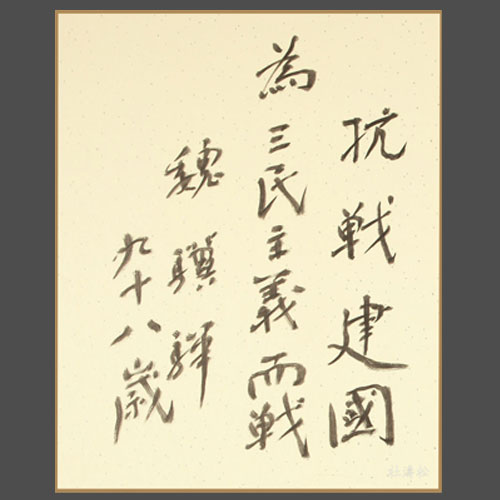 抗戦建國
為三民主義而戦
魏騏驊
九十八歳